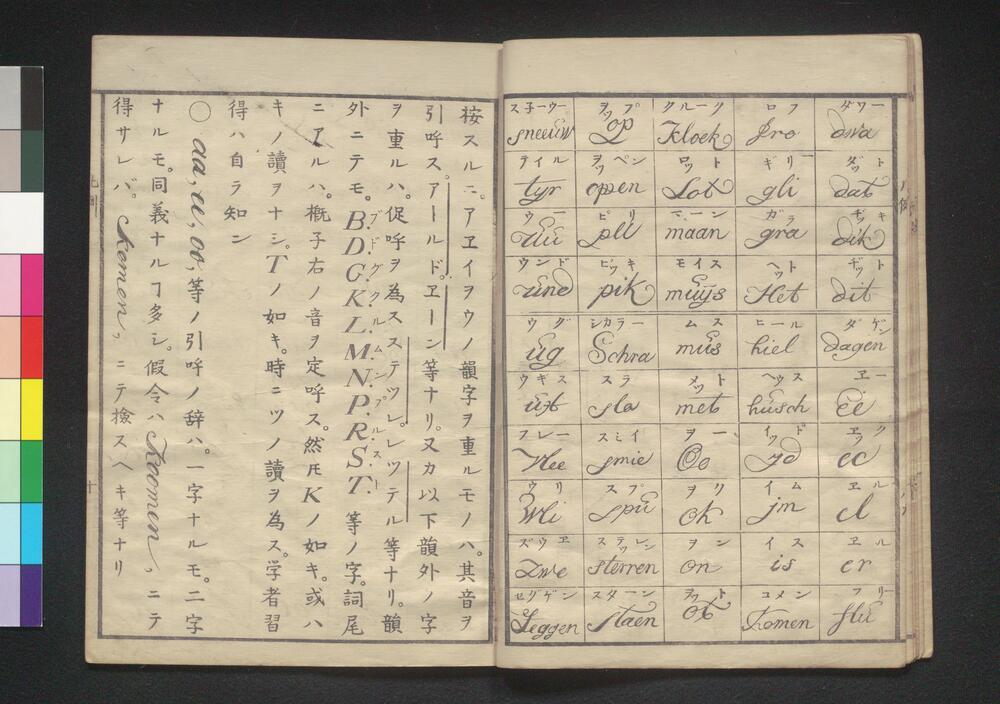 ダワー
dwa
ダット
dat
ヂッキ
dik
ヂット
dit
ダゲン
dagen
ヱー
ee
ヱック
ec
ヱル
el
ヱル
er
フリー
flu
ロフ
fro
ギリ
gli
ガラ
gra
ヘット
Het
ヒール
hiel
ヘウス
husch
イッド
jd
イム
jm
イス
is
コメン
komen
クルーク
Kloek
ロット
Lot
マーン
maan
モイス
muijs
ムス
mus
メット
met
ヲー
Oo
ヲリ
Ok
ヲン
on
ヲット
Ot
ヲップ
Op
ヲッペン
open
ピリ
pli
ピッキ
pik
シカラー
Schra
スラ
sla
スミイ
smie
スプ
spu
ステッレン
sterren
スターン
staen
ス子ーウー
sneeuw
テイル
tyr
ウー
uu
ウンド
und
ウグ
ug
ウギス
uit
フレー
Vlee
ウリ
Wli
ズウヱ
zwe
セッゲン
Zeggen
按スルニ。アヱイヲウノ韻字ヲ重ルモノハ。其音ヲ
引呼ス。アールド。ヱーン等ナリ。又カ以下韻外ノ字
ヲ重ルハ。促呼ヲ為スステツレ。レツテル等ナリ。韻
外ニテモ。B.D.G.K.L.M.N.P.R.S.T. 等ノ字。詞尾
ブドグクルムンプルスト
ニアルハ。概子右ノ音ヲ定呼ス。然𪜈Kノ如キ。或ハ
キノ讀ヲナシ。Tノ如キ。時ニツノ讀ヲ為ス。学者習
得ハ自ラ知ン
〇 aa, ee, oo, 等ノ引呼ノ辞ハ。一字ナルモ。二字
ナルモ。同義ナルヿ多シ。假令ハ Koomen, ニテ
得サレバ。Komen, ニテ撿スヘキ等ナリ